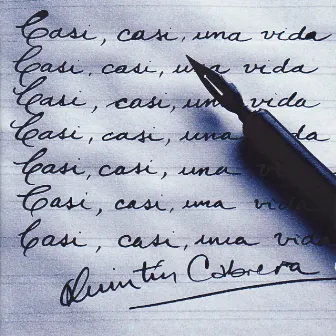 Casi, casi, una vida
Casi, casi, una vida
Casi, casi, una vida
Casi, casi, una vida
Casi, casi, una vi
Casi, casi, una vida
Casi, casi, una vida
Quintín Cabrera